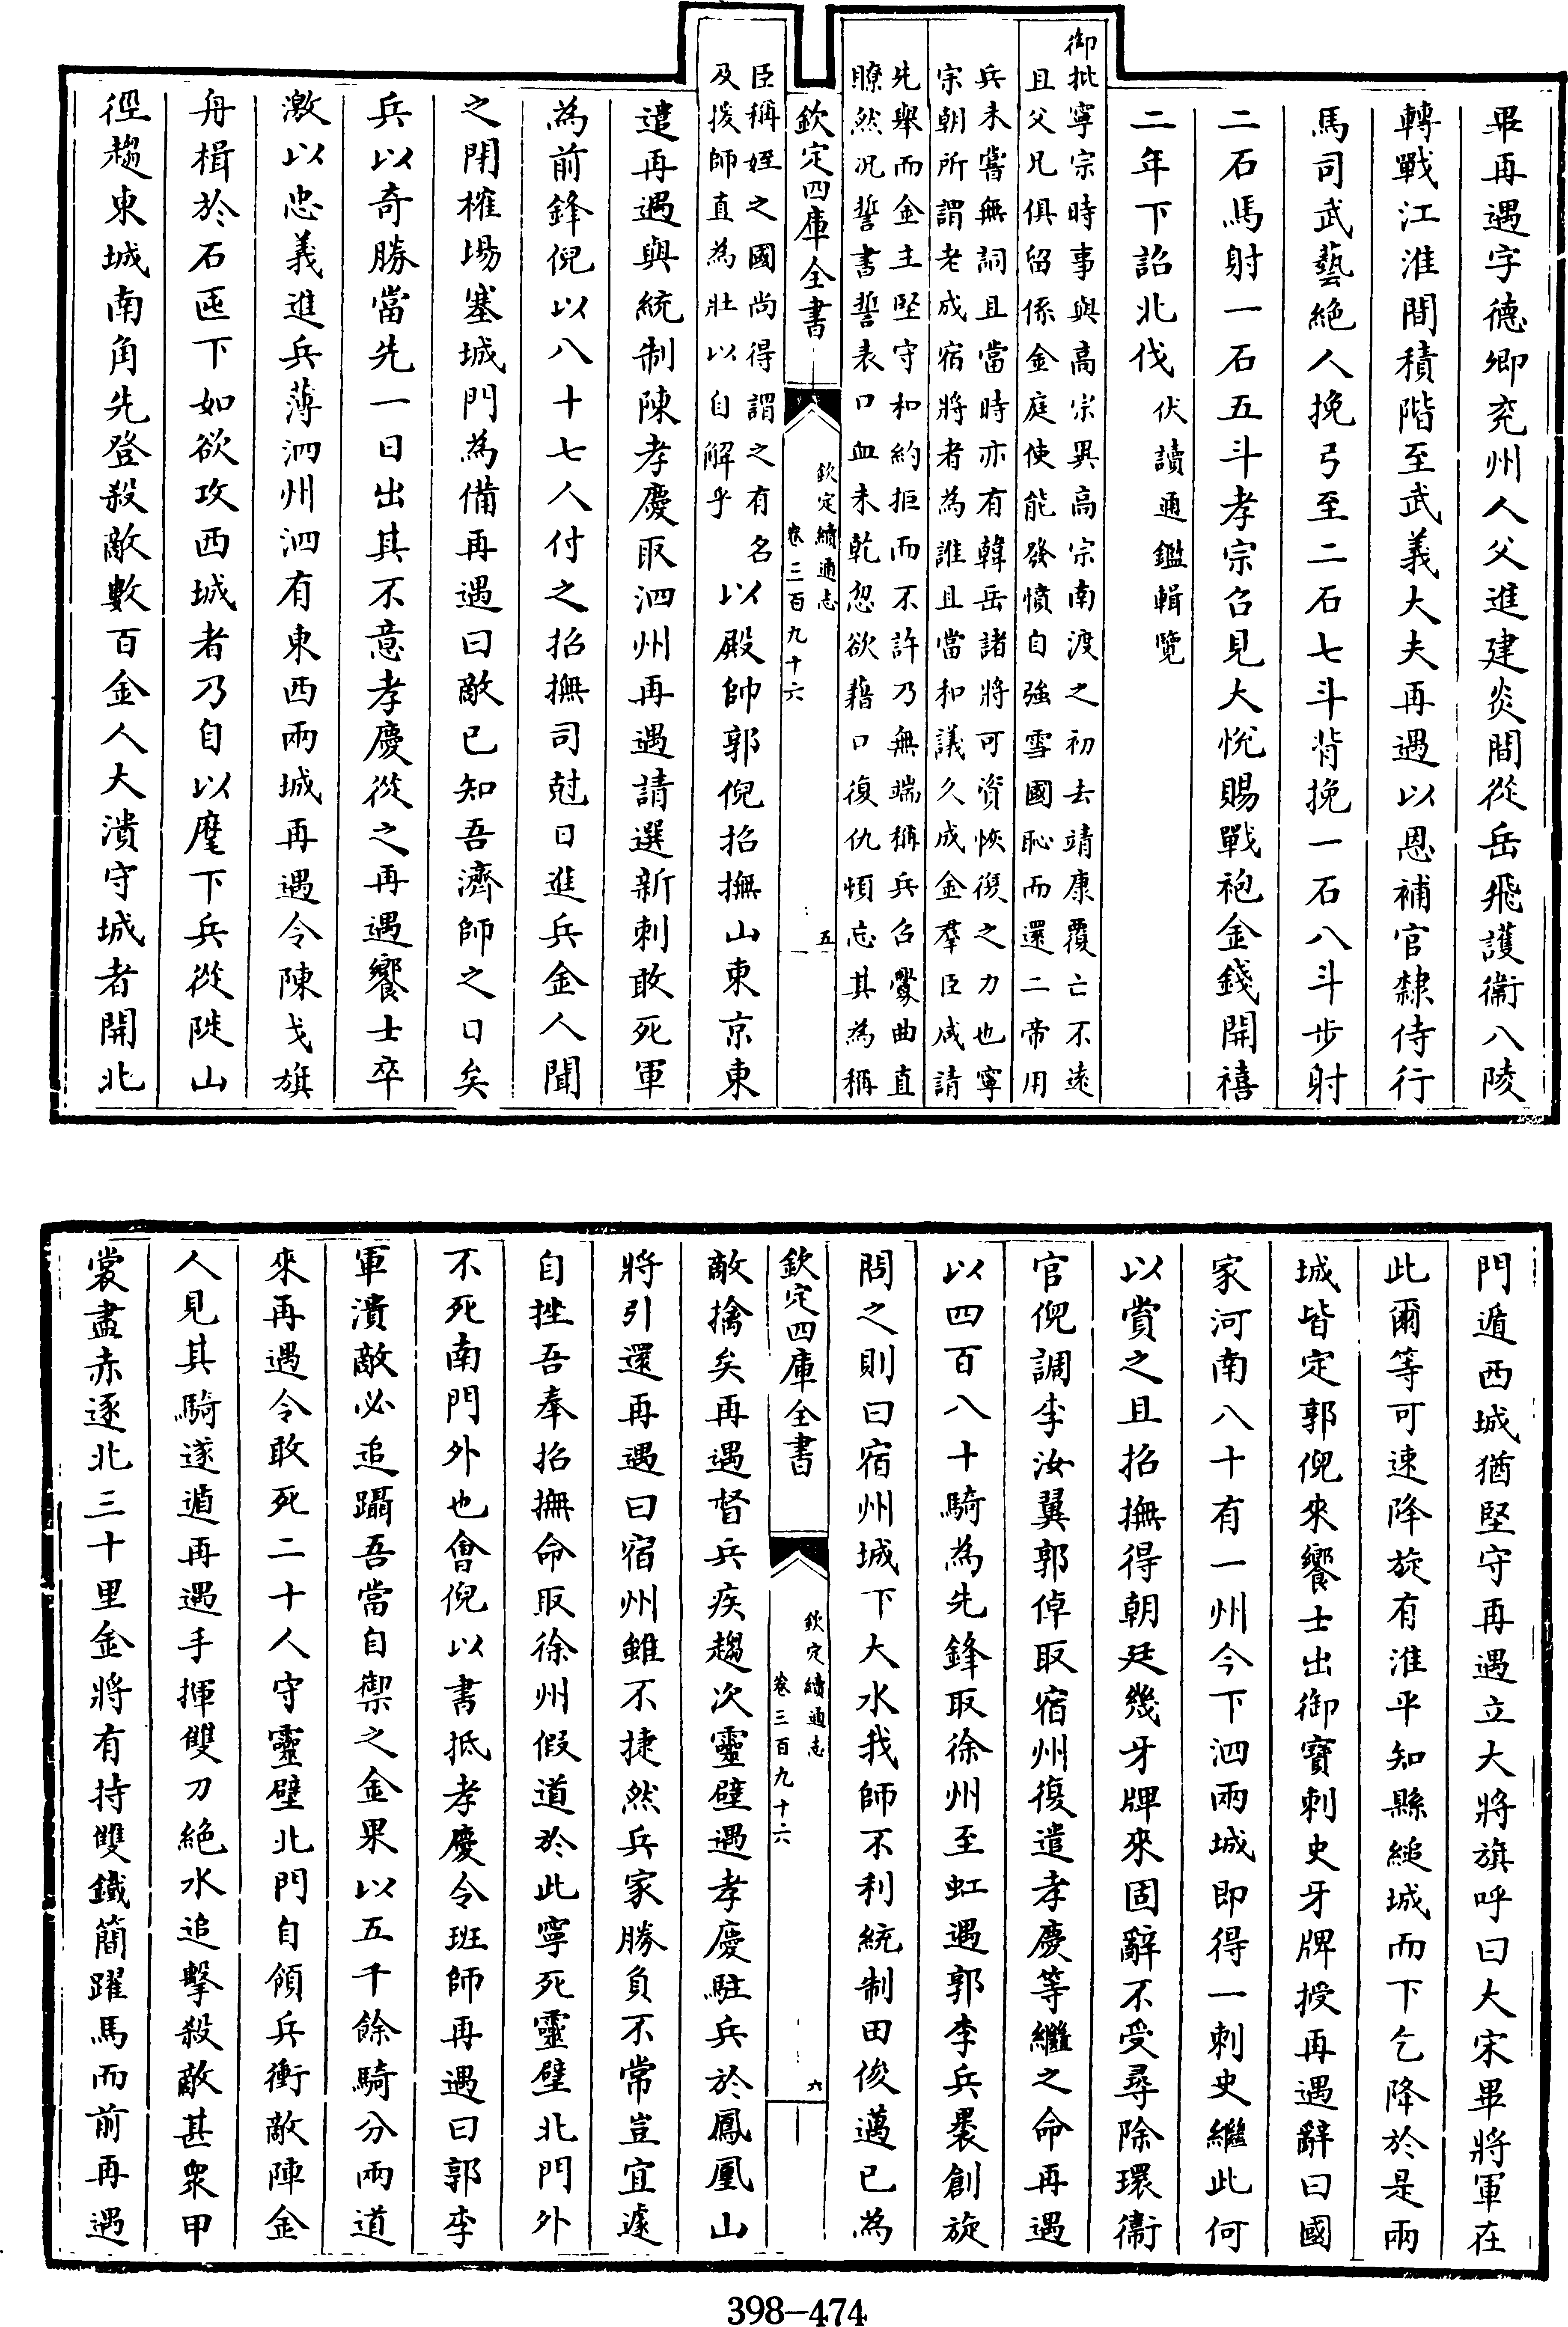 畢再遇字德卿兖州人父進建炎間從岳飛護衞八陵
轉戰江淮間積階至武義大夫再遇以恩補官隸侍行
馬司武藝絶人挽弓至二石七斗背挽一石八斗步射
二石馬射一石五斗孝宗召見大悅賜戰袍金錢開禧
二年下詔北伐伏讀通鑑輯覽
御批寧宗時事與高宗異高宗南渡之初去靖康覆亡不遠
且父兄俱留係金庭使能發憤自強雪國恥而還二帝用
兵未嘗無詞且當時亦有韓岳諸將可資恢復之力也寧
宗朝所謂老成宿將者為誰且當和議久成金羣臣咸請
先舉而金主堅守和約拒而不許乃無端稱兵召釁曲直
瞭然況誓書誓表口血未乾忽欲藉口復仇頓忘其為稱
欽定四庫全書
欽定續通志
卷三百九十六
五
臣稱姪之國尚得謂之有名
及援師直為壯以自解乎
以殿帥郭倪招撫山東京東
遣再遇與統制陳孝慶取泗州再遇請選新刺敢死軍
為前鋒倪以八十七人付之招撫司尅日進兵金人聞
之閉榷場塞城門為備再遇曰敵已知吾濟師之日矣
兵以奇勝當先一日出其不意孝慶從之再遇饗士卒
激以忠義進兵薄泗州泗有東西兩城再遇令陳戈旗
舟楫於石𠨐下如欲攻西城者乃自以麾下兵從陡山
徑趨東城南角先登殺敵數百金人大潰守城者開北
門遁西城猶堅守再遇立大將旗呼曰大宋畢將軍在
此爾等可速降旋有淮平知縣縋城而下乞降於是兩
城皆定郭倪來饗士出御寶刺史牙牌授再遇辭曰國
家河南八十有一州今下泗兩城即得一刺史繼此何
以賞之且招撫得朝廷幾牙牌來固辭不受尋除環衞
官倪調李汝翼郭倬取宿州復遣孝慶等繼之命再遇
以四百八十騎為先鋒取徐州至虹遇郭李兵裹創旋
問之則曰宿州城下大水我師不利統制田俊邁已為
欽定四庫全書
欽定續通志
卷三百九十六
六
敵擒矣再遇督兵疾趨次靈璧遇孝慶駐兵於鳳凰山
將引還再遇曰宿州雖不捷然兵家勝負不常豈宜遽
自挫吾奉招撫命取徐州假道於此寧死靈璧北門外
不死南門外也會倪以書抵孝慶令班師再遇曰郭李
軍潰敵必追躡吾當自禦之金果以五千餘騎分兩道
來再遇令敢死二十人守靈璧北門自領兵衝敵陣金
人見其騎遂遁再遇手揮雙刀絶水追擊殺敵甚衆甲
裳盡赤逐北三十里金將有持雙鐵簡躍馬而前再遇
398-474